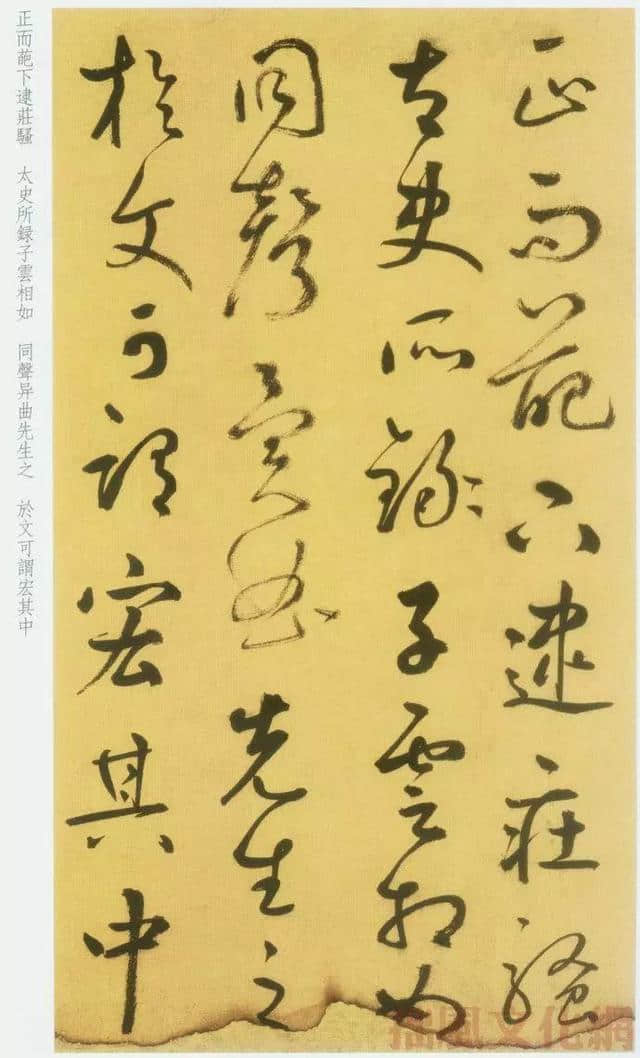 正而葩下逮莊騷
太史所録子雲相如
同聲异曲先生之
於文可謂宏其中
正而葩下逮莊騷 太史所録子雲相如 同聲异曲先生之 於文可謂宏其中
風文化網